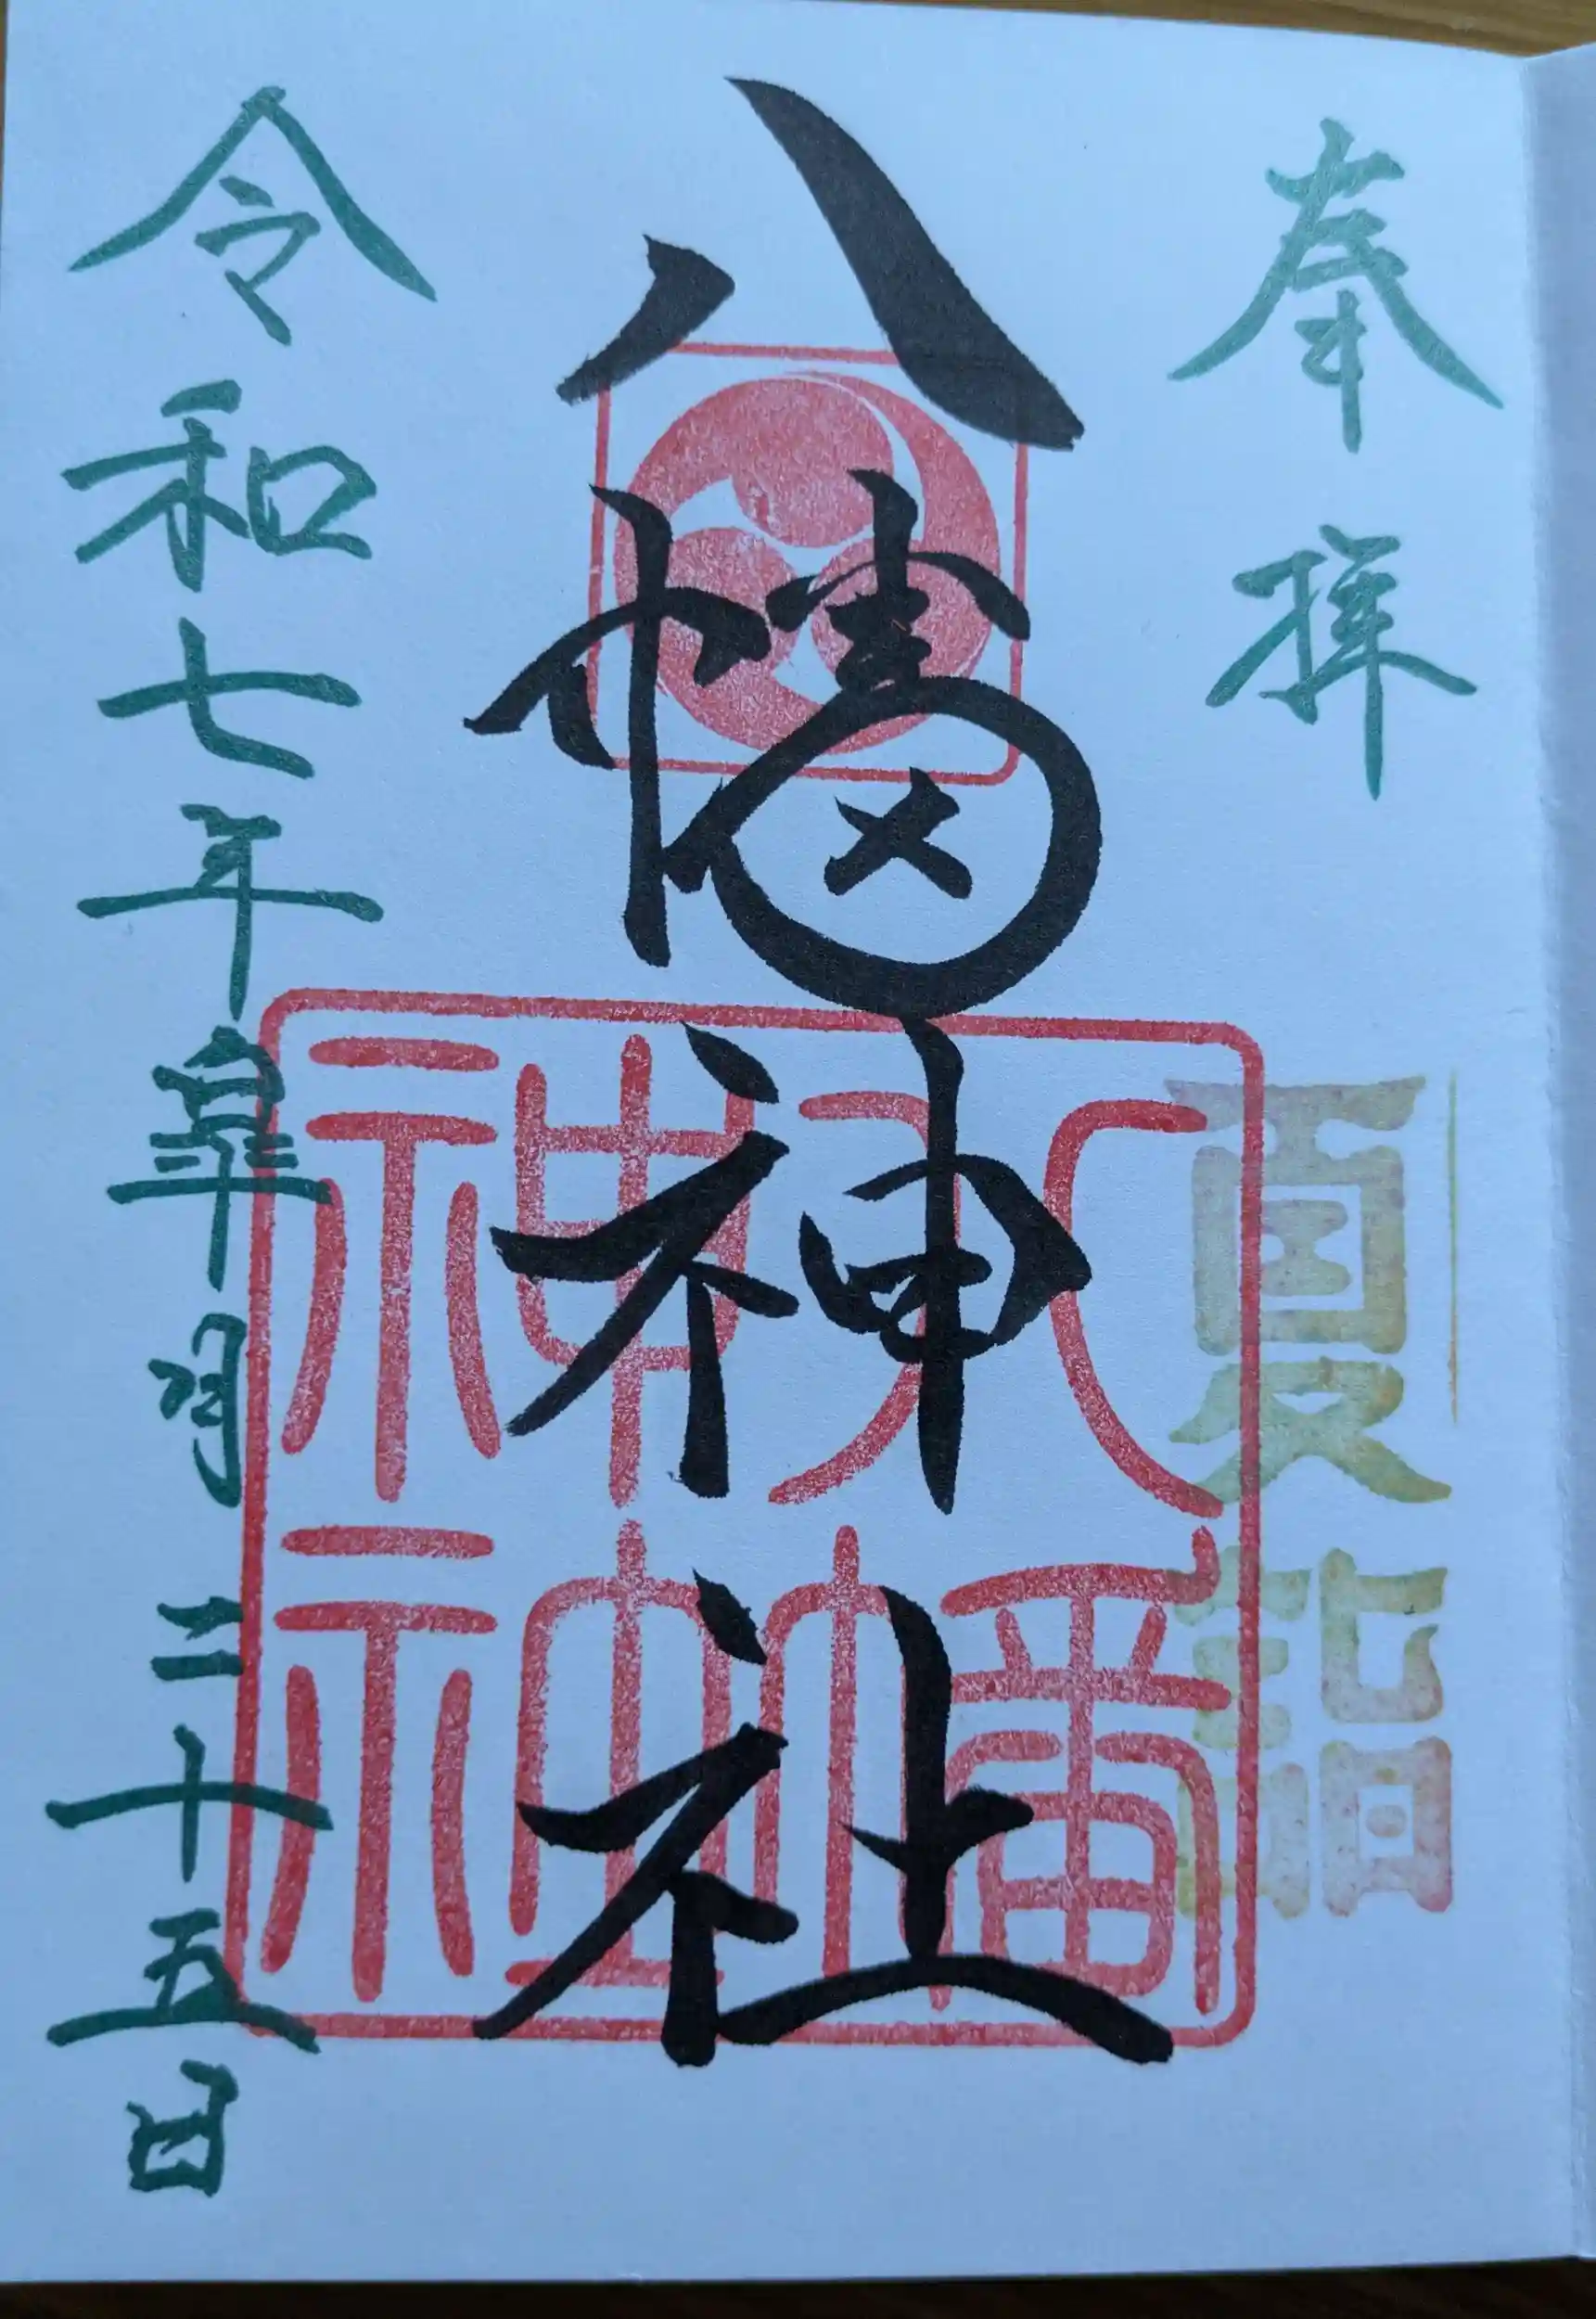 奉拝
夏詣
八幡神社
八幡神社
令和七年皐月二十五日